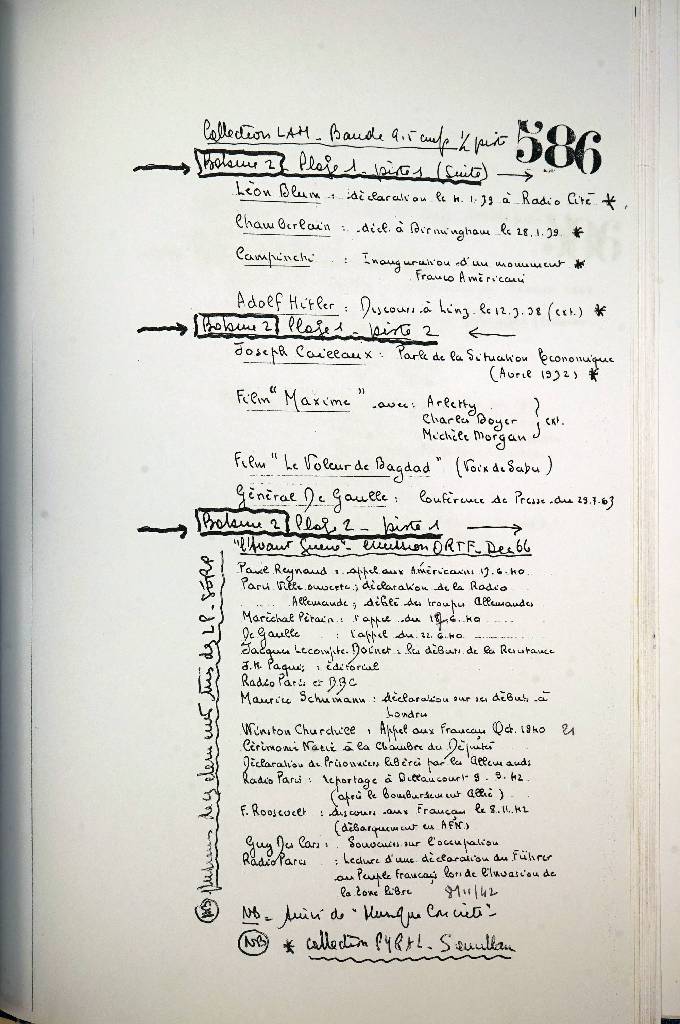 Collection LAM - Bande 9.5 cm/s 1/2 piste
586
Bobine 2 Plage 1 - piste 1 (suite)
Léon Blum : déclaration le 1.39 à Radio Cité *
Chamberlain : décl. à Birmingham le 28.1.39 *
Campinchi : Inauguration d'un monument *
Franco Américain
Adolf Hitler : Discours à Linz le 12.3.38 (ext.) *
Bobine 2 Plage 1 - piste 2
Joseph Caillaux : Parle de la Situation Economique
(Avril 1932) *
Film "Maxime" avec : Arletty
Charles Boyer ext.
Michèle Morgan
Film "Le Voleur de Bagdad" (Voix de Sabu)
Général De Gaulle : Conférence de Presse du 29.7.63
Bobine 2 Plage 2 - piste 1
"l'Avant Guerre" - émission ORTF - Dec 66
Paul Reynaud : appel aux Américains .6.40
Paris Ville ouverte ; déclaration de la Radio
Allemande ; défilé des troupes Allemandes
Maréchal Pétain : l'appel du .6.40
De Gaulle : l'appel du 22.6.40
Jacques Lecompte-Boinet : les débuts de la Résistance
J.H. Paquis : éditorial
Radio Paris et BBC
Maurice Schumann : déclaration sur ses débuts à
Londres
Winston Churchill : Appel aux Français Oct. 1940 21
Cérimoni Nazie à la Chambre des Députés
Déclaration de Prisonniers libérés par les Allemands
Radio Paris : reportage à Billancourt 9.3.42
(après le bombardement Allié)
F. Roosevelt : discours aux Français le 8.11.42
(débarquement en AFN)
Guy Des Cars : Souvenirs sur l'occupation
Radio Paris : Lecture d'une déclaration du Führer
au Peuple Français lors de l'invasion de
la Zone libre 8/11/42
NB - Suivi de "Musique Concrète"
NB * collection PYRAL - Semillan
NB Plusieurs des elements tirés de LP - SERP